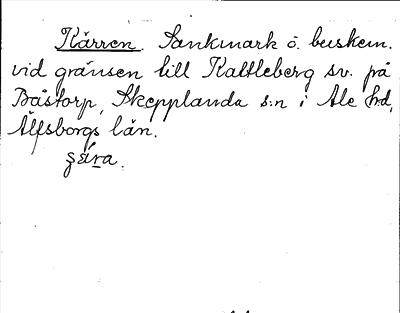 Kärren. Sankmark o. buskem.
vid gränsen till Kattleberg sv. på
Båstorp, Skepplanda s:n i Ale hd,
Älfsborgs län.